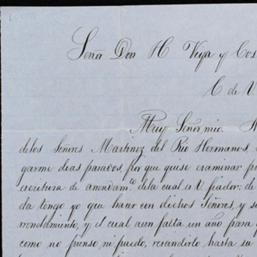 Señor Don H Veja y Cos
C de V
Muy Señor mio.
de los Señores Martinez del Rio Hermanos,
garme dias pasados, por que quise examinar
escritura de arrendamto de la cual es V. fiador: de
da tengo yo que hacer con dichos Señores, y
rendimiento, y el cual aun falta un año para
como no pienso, ni puedo, rescindirlo hasta su